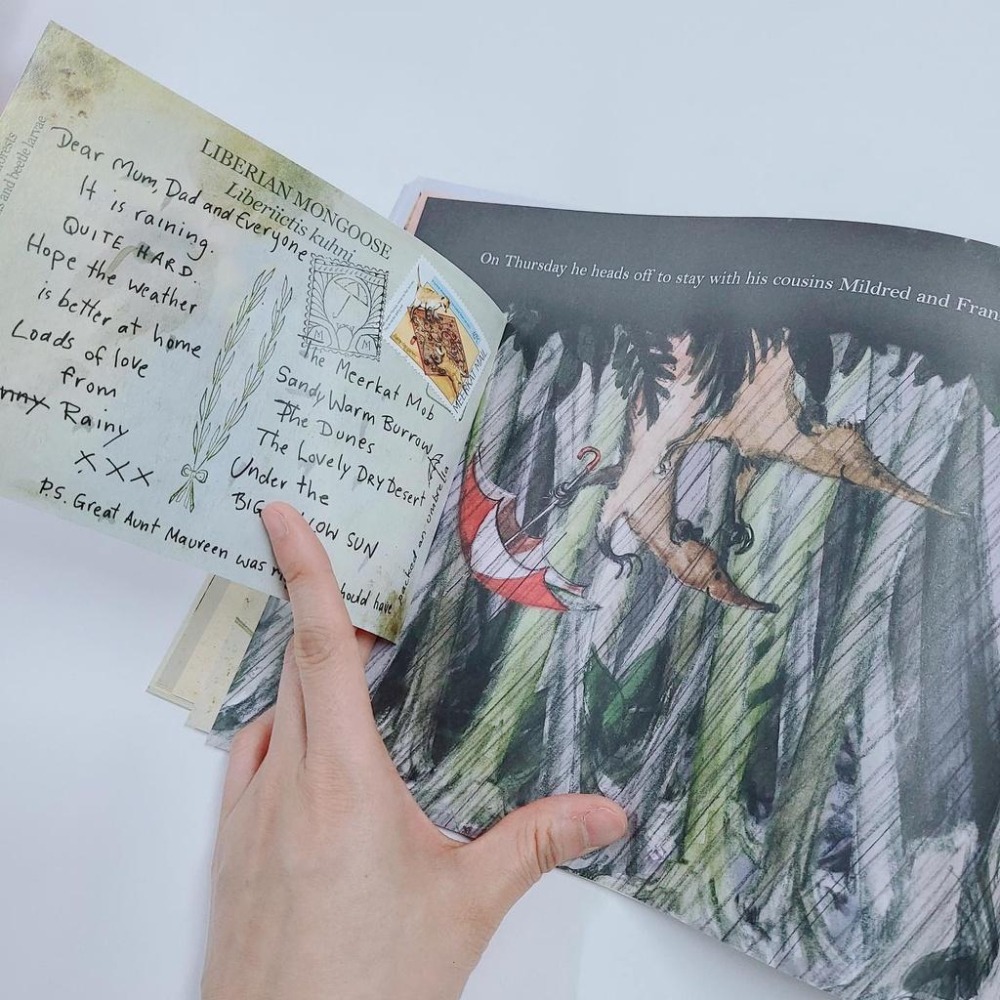 forests
s and beetle larvae
LIBERIAN MONGOOSE
Liberiictis kuhni
Dear Mum, Dad and Everyone
It is raining.
QUITE HARD.
Hope the weather
is better at home
Loads of love
from
nny Rainy
XXX
P.S. Great Aunt Maureen was
hould have
packed an umbrella
M M
MEERKAT MAIL
The Meerkat Mob
Sandy Warm Burrow
The Dunes
The Lovely DRY Desert
Under the
BIG LOW SUN
On Thursday he heads off to stay with his cousins Mildred and Fran